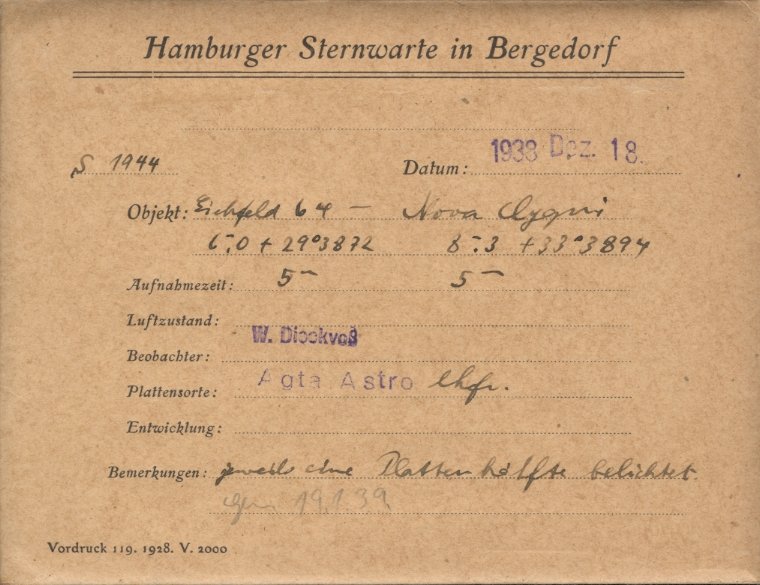 Hamburger Sternwarte in Bergedorf
S 1944 Datum: 1938 Dez. 18.
Objekt: Eichfeld 64 — Nova Cygni
6ᵐ.0 + 29°3872 8ᵐ.3 +33°3894
Aufnahmezeit: 5ᵐ 5ᵐ
Luftzustand:
Beobachter: W. Dieckvoß
Plattensorte: Agfa Astro
Entwicklung:
Bemerkungen: jeweils eine Plattenhälfte belichtet
19.1.39.
Vordruck 119. 1928. V. 2000